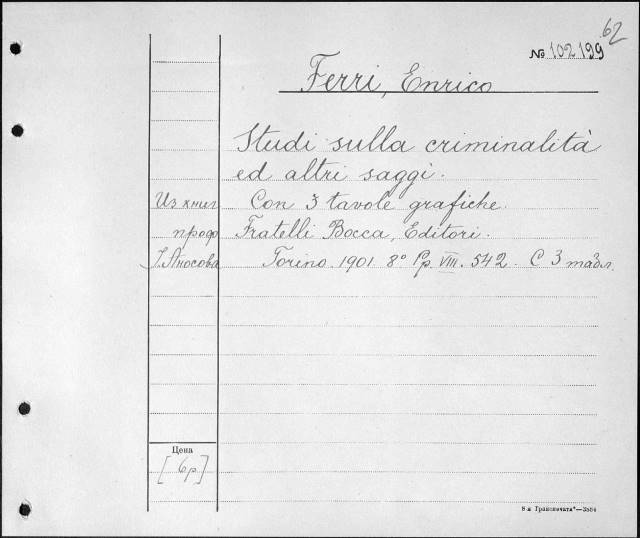 62
№ 102199
Ferri, Enrico
Studi sulla criminalità
ed altri saggi.
Из книг Con 3 tavole grafiche.
проф Fratelli Bocca, Editori.
Аносова Torino 1901. 8° Pp. VIII. 542. С 3 табл.
Цена
[6р]
8-я Транспечати"—3584